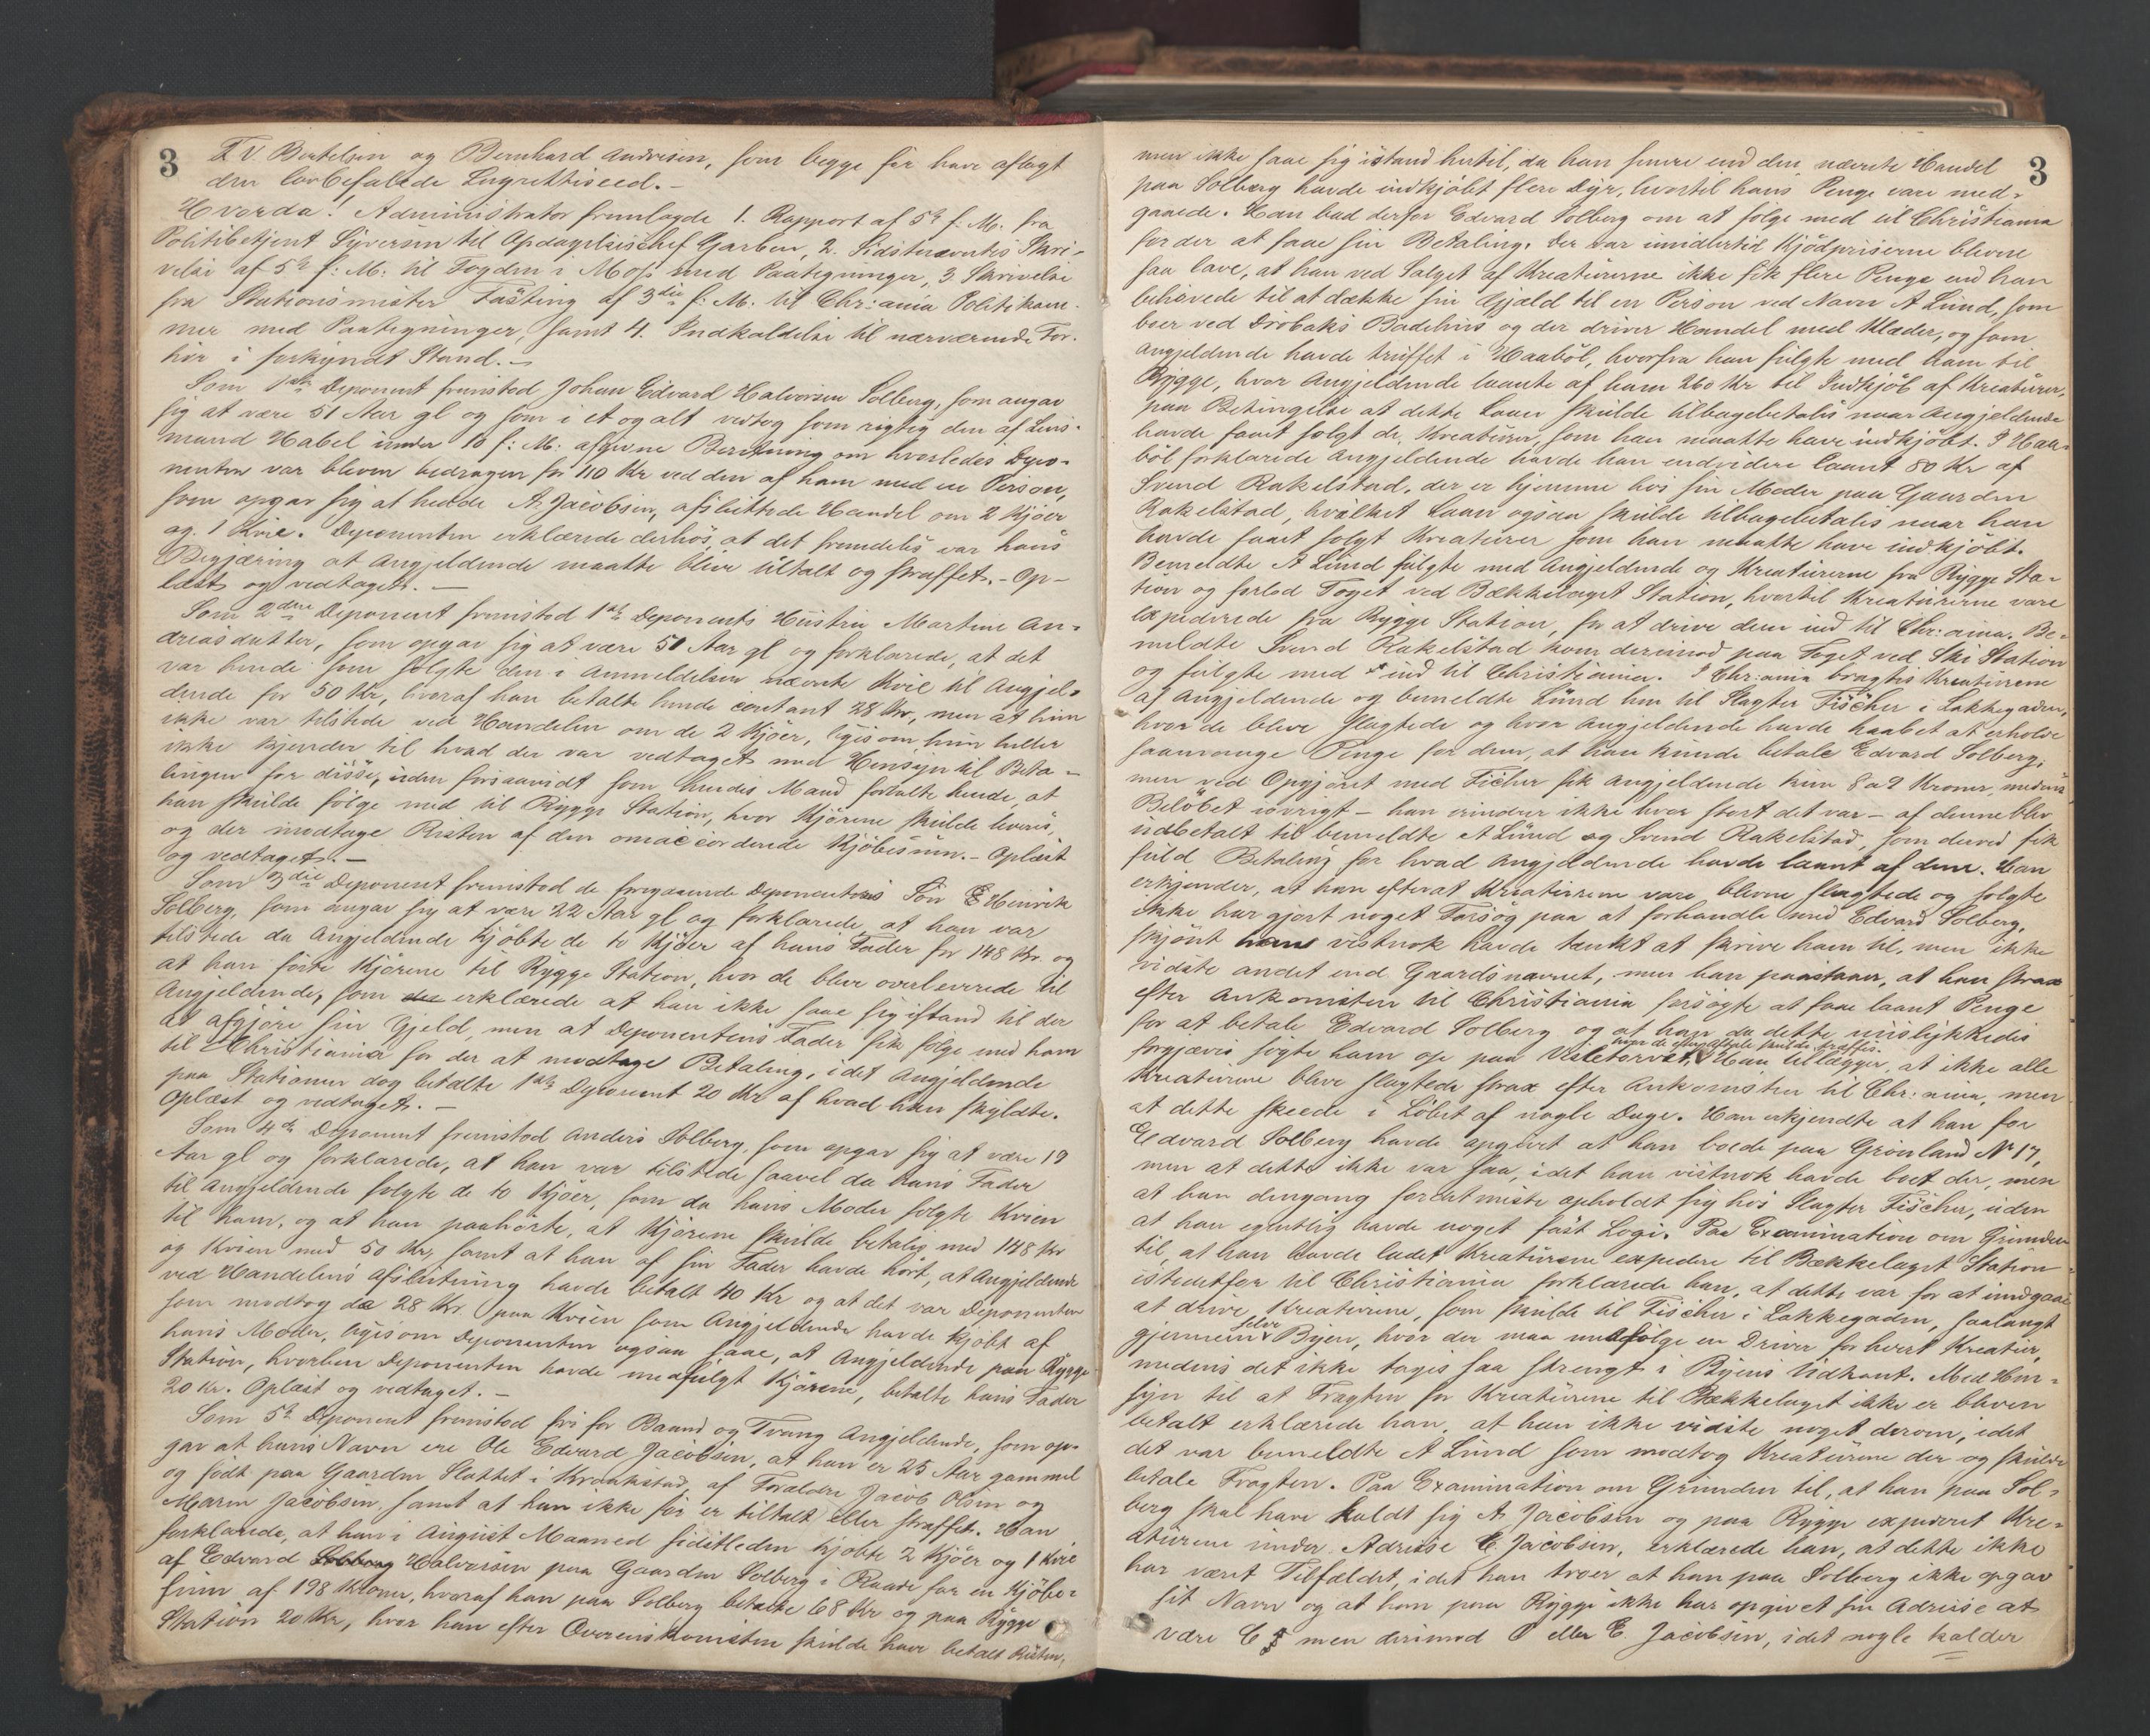 3
T. V. Bertelsen og Bernhard Andresen, som begge før have aflagt
den lovbefalede Lagrettiseed.-
Hvorda! Administrator fremlagde 1. Rapport af 5te f: M. fra
Politibetjent Syversen til Opdagelseschef Garben, 2. Sidstnævntes Skri-
velse af 5te f: M: til Fogden i Moss med Paategninger, 3 Skrivelse
fra Stationsmester Fasting af 3die f: M. til Chr:ania Politikam-
mer med Paategninger, samt 4. Indkaldelse til nærværende For-
hør i forkyndt Stand.-
Som 1ste Deponent fremstod Johan Edvard Halvorsen Solberg, som angav
sig at være 51 Aar gl og som i et og alt vedtog som rigtig den af Lens-
mand Habel under 10 f: M: afgivne Beretning om hvorledes Depo-
nenten var bleven bedragen for 110 Kr ved den af ham med en Person,
som opgav sig at hedde A. Jacobsen, afsluttede Handel om 2 Kjöer
og 1 Kvie. Deponenten erklærede derhös, at det fremdeles var hans
Begjæring at Angjeldende maatte blive tiltalt og straffet.- Op-
læst og vedtaget.-
Som 2den Deponent fremstod 1ste Deponents Hustru Martine An-
dreasdatter, som opgav sig at være 50 Aar gl og forklarede, at det
var hende som solgte den i Anmeldelsen nævnte Kvie til Angjel-
dende for 50 Kr, hvoraf han betalte hende contant 28 Kr, men at hun
ikke var tilstede ved Handelen om de 2 Kjöer, ligesom hun heller
ikke kjender til hvad der var vedtaget med Hensyn til Beta-
lingen for disse, uden forsaavidt som hendes Mand fortalte hende, at
han skulde følge med til Rygge Station, hvor Kjörene skulde leveres,
og der modtage Resten af den omaccorderede Kjöbesum.- Oplæst
og vedtaget.-
Som 3die Deponent fremstod de foregaaende Deponenters Sön Henrik
Solberg, som angav sig at være 22 Aar gl og forklarede, at han var
tilstede da Angjeldende kjöbte de to Kjöer af hans Fader for 148 Kr. og
at han förte Kjörene til Rygge Station, hvor de blev overleverede til
Angjeldende, som erklærede at han ikke saae sig istand til der
at afgjöre sin Gjeld, men at Deponentens Fader fik følge med ham
til Christiania for der at modtage Betaling, idet Angjeldende
paa Stationen dog betalte 1ste Deponent 20 Kr af hvad han skyldte.
Oplæst og vedtaget.-
Som 4de Deponent fremstod Anders Solberg, som opgav sig at være 19
Aar gl og forklarede, at han var tilstede saavel da hans Fader
til Angjeldende solgte de to Kjöer, som da hans Moder solgte Kvien
til ham, og at han paahörte, at Kjörene skulde betales med 148 Kr
og Kvien med 50 Kr, samt at han af sin Fader havde hört, at Angjeldende
ved Handelens Afslutning havde betalt 40 Kr og at det var Deponenten
som modtog de 28 Kr paa Kvien som Angjeldende havde kjöbt af
hans Moder, ligesom Deponenten ogsaa saae, at Angjeldende paa Rygge
Station, hvorhen Deponenten havde medfulgt Kjörene, betalte hans Fader
20 Kr. Oplæst og vedtaget.-
Som 5te Deponent fremstod fri for Baand og Tvang Angjeldende, som op-
gav at hans Navn ere Ole Edvard Jacobsen, at han er 25 Aar gammel
og födt paa Gaarden Slattet i Kraakstad, af Forældre Jacob Olsen og
Maren Jacobsen, samt at han ikke før er tiltalt eller straffet. Han
forklarede, at han i August Maaned sidstleden kjöbte 2 Kjöer og 1 Kvie
af Edvard Solberg Halvorsen paa Gaarden Solberg i Raade for en Kjöbe-
sum af 198 Kroner, hvoraf han paa Solberg betalte 68 Kr og paa Rygge
Station 20 Kr, hvor han efter Overenskomsten skulde have betalt Resten,
3
men ikke saae sig istand hertil, da han senere end den nævnte Handel
paa Solberg havde indkjöbt flere Dyr, hvortil hans Penge vare med-
gaaede. Han bad derfor Edvard Solberg om at følge med til Christiania
for der at faae sin Betaling. Der var imidlertid Kjödpriserne blevne
saa lave, at han ved Salget af Kreaturerne ikke fik flere Penge end han
behövede til at dække sin Gjæld til en Person ved Navn A Lund, som
boer ved Dröbaks Badehus og der driver Handel med Klæder, og som
Angjeldende havde truffet i Haaböl, hvorfra han fulgte med ham til
Rygge, hvor Angjeldende laante af ham 260 Kr til Indkjöb af Kreaturer,
paa Betingelse at dette Laan skulde tilbagebetales naar Angjeldende
havde faaet solgt de Kreaturer, som han maatte have indkjöbt. I Haa-
böl forklarede Angjeldende havde han endvidere laant 80 Kr af
Svend Rakelstad, der er hjemme hos sin Moder paa Gaarden
Rakelstad, hvilket Laan ogsaa skulde tilbagebetales naar han
havde faaet solgt Kreaturer som han maatte have indkjöbt.
Bemeldte A Lund fulgte med Angjeldende og Kreaturerne fra Rygge Sta-
tion og forlod Toget ved Bækkelaget Station, hvortil Kreaturerne vare
expederede fra Rygge Station, for at drive dem ind til Chr:ania. Be-
meldte Svend Rakelstad kom derimod paa Toget ved Ski Station
og fulgte med ind til Christiania. I Chr:ania bragtes Kreaturerne
af Angjeldende og bemeldte Lund hen til Slagter Fischer i Lakkegaden,
hvor de bleve slagtede og hvor Angjeldende havde haabet at erholde
saamange Penge for dem, at han kunde betale Edvard Solberg,
men ved Opgjöret med Fischer fik Angjeldende kun 8 a 9 Kroner, medens
Belöbet iövrigt - han erindrer ikke hvor stort det var - af denne blev
udbetalt til bemeldte A Lund og Svend Rakelstad, som derved fik
fuld Betaling for hvad Angjeldende havde laant af dem. Han
erkjender, at han efterat Kreaturerne vare blevne slagtede og solgte
ikke har gjort noget Forsög paa at forhandle med Edvard Solberg,
skjönt han vistnok havde tænkt at skrive ham til, men ikke
vidste andet end Gaardsnavnet, men han paastaar, at han strax
efter Ankomsten til Christiania forsögte at faae laant Penge
for at betale Edvard Solberg og at han da dette mislykkedes
forgjæves sögte ham op paa Vesletorvet, hvor de skulde træffes. Han tillægger, at ikke alle
Kreaturene bleve slagtede strax efter Ankomsten til Chr:ania, men
at dette skeede i Löbet af nogle Dage. Han erkjendte at han for
Edvard Solberg havde opgivet at han boede paa Grönland No 17,
men at dette ikke var saa, idet han vistnok havde boet der, men
at han dengang for det meste opholdt sig hos Slagter Fischer, uden
at han egentlig havde noget fast Logi. Paa Examination om Grunden
til, at han havde ladet Kreaturene expedere til Bækkelaget Station
istedetfor til Christiania forklarede han, at dette var for at undgaae
at drive Kreaturene, som skulde til Fischer i Lakkegaden, saalangt
gjennem selve Byen, hvor der maa medfølge en Driver for hvert Kreatur,
medens det ikke tages saa strengt i Byens Udkant. Med Hen-
syn til at Fragten for Kreaturene til Bækkelaget ikke er bleven
betalt erklærede han, at han ikke vidste noget derom, idet
det var bemeldte A Lund som modtog Kreaturene der og skulde
betale Fragten. Paa Examination om Grunden til, at han paa Sol-
berg skal have kaldt sig A. Jacobsen og paa Rygge expederet Kre-
aturene under Adresse C. Jacobsen, erklærede han, at dette ikke
har været Tilfældet, idet han troer at han paa Solberg ikke opgav
sit Navn og at han paa Rygge ikke har opgivet sin Adresse at
være C men derimod O eller E. Jacobsen, idet nogle kalder